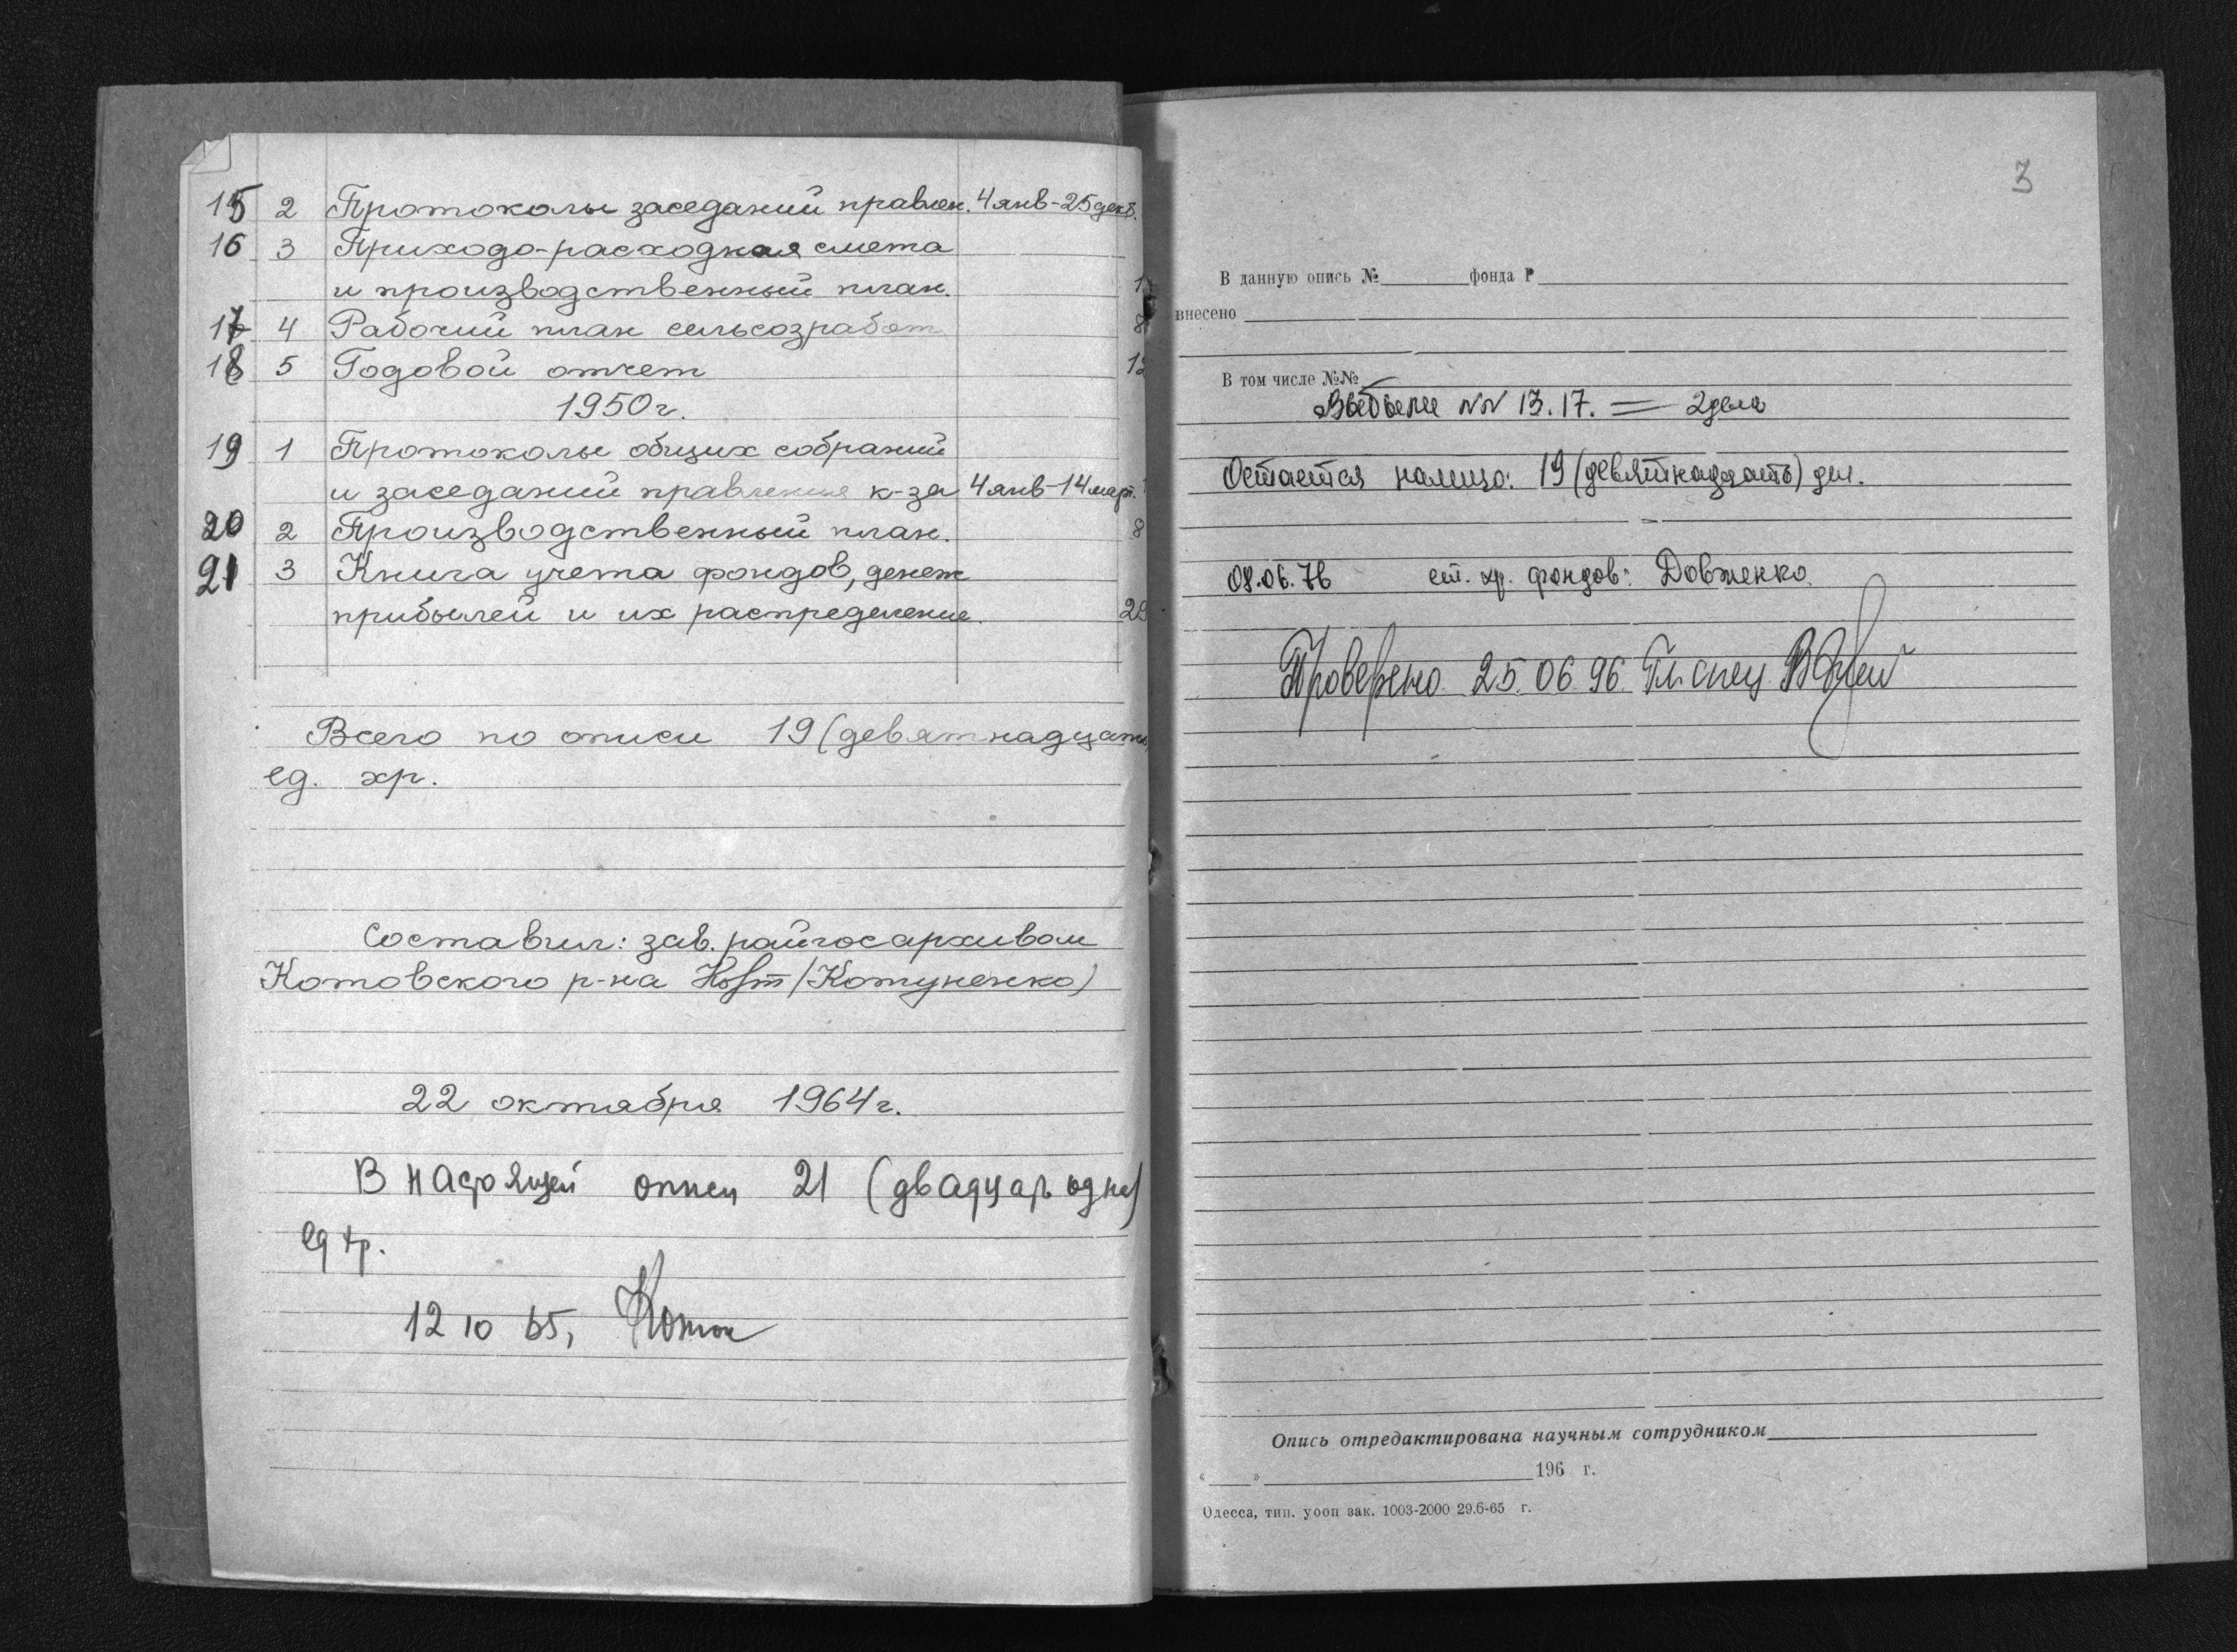 15 2 Протоколы заседаний правлен. 4 янв-25 дек.
16 3 Приходо-расходная смета
и производственный план.
17 4 Рабочий план сельхозработ 8
18 5 Годовой отчет 12
1950 г.
19 1 Протоколы общих собраний
и заседаний правления к-за 4 янв-14 март.
20 2 Производственный план. 8
21 3 Книга учета фондов, денеж
прибылей и их распределение. 29
Всего по описи 19 (девятнадцать
ед. хр.
Составил: зав. райгосархивом
Котовского р-на /Котуненко)
22 октября 1964 г.
В настоящей описи 21 (двадцать одна)
ед хр.
12 10 65,
3
В данную опись № фонда Р
внесено
В том числе №№
Выбыли NN 13. 17. = 2 дела
Остается налицо: 19 (девятнадцать) дел.
08.06.76 ст. хр. фондов: Довженко
Проверено 25.06 96. Гл. спец
Опись отредактирована научным сотрудником
« » 196 г.
Одесса, тип. уооп зак. 1003-2000 29.6-65 г.